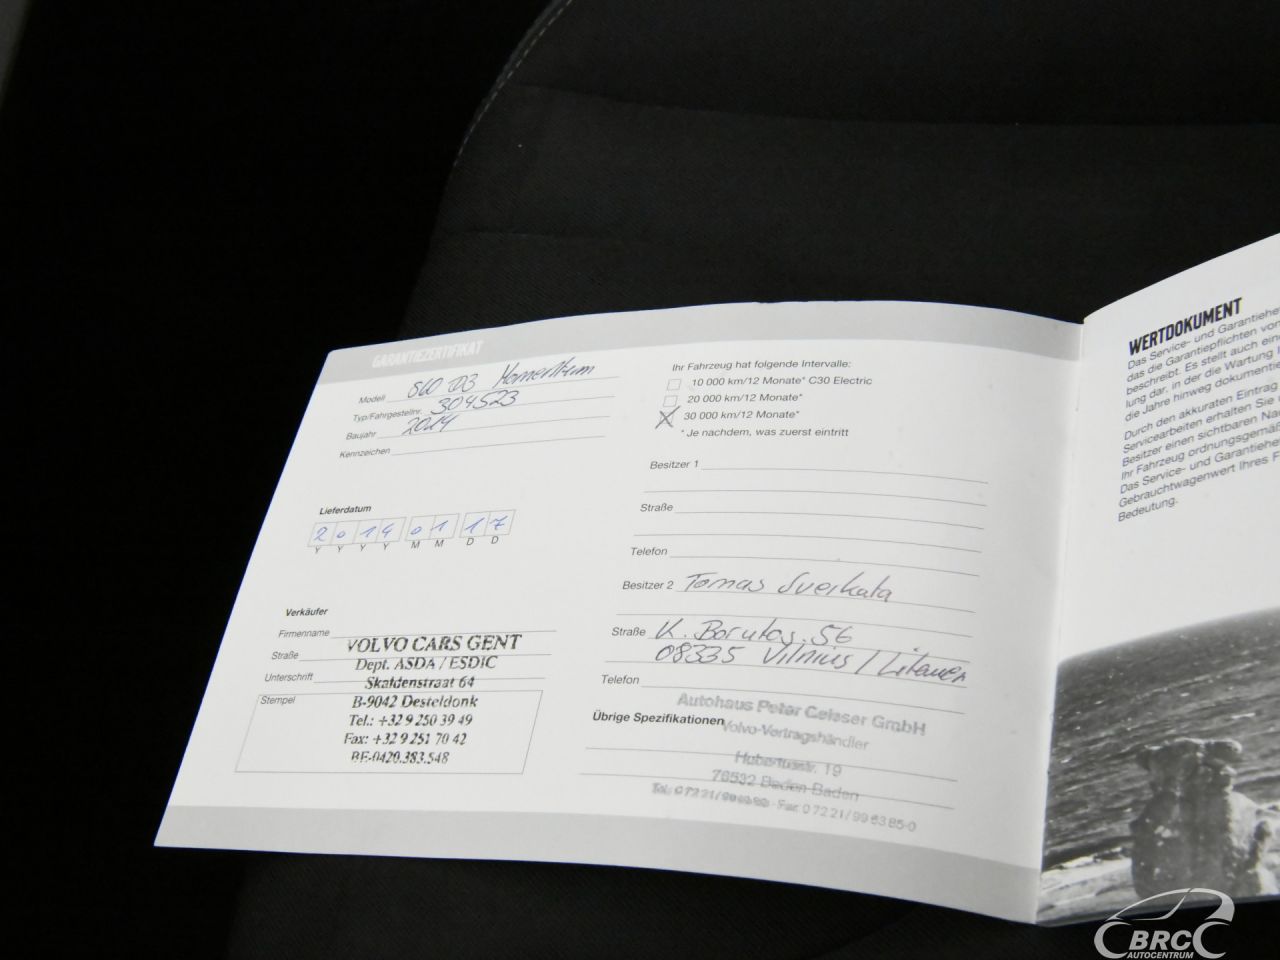 GARANTIEZERTIFIKAT
Modell S60 D3 Momentum
Typ/Fahrgestellnr. 304523
Baujahr 2014
Kennzeichen
Lieferdatum
2 0 1 4 0 1 1 7
Y Y Y Y M M D D
Verkäufer
Firmenname
Straße
Unterschrift
Stempel
VOLVO CARS GENT
Dept. ASDA / ESDIC
Skaldenstraat 64
B-9042 Desteldonk
Tel.: +32 9 250 39 49
Fax: +32 9 251 70 42
BE-0420.383.548
Ihr Fahrzeug hat folgende Intervalle:
10 000 km/12 Monate* C30 Electric
20 000 km/12 Monate*
30 000 km/12 Monate*
* Je nachdem, was zuerst eintritt
Besitzer 1
Straße
Telefon
Besitzer 2 Tomas Sveikata
Straße K. Borutos. 56
08335 Vilnius / Litauen
Telefon
Übrige Spezifikationen
Autohaus Peter Geisser GmbH
Volvo-Vertragshändler
Hubertusstr. 19
76532 Baden-Baden
Fax 0 72 21/99 63 85-0
WERTDOKUMENT
Das Service- und Garantiehe
das die Garantiepflichten von
beschreibt. Es stellt auch ein
lung dar, in der die Wartung
die Jahre hinweg dokumentie
Durch den akkuraten Eintrag
Servicearbeiten erhalten Sie
Besitzer einen sichtbaren Na
Ihr Fahrzeug ordnungsgemäß
Das Service- und Garantiehe
Gebrauchtwagenwert Ihres F
Bedeutung.
BRC
AUTOCENTRUM